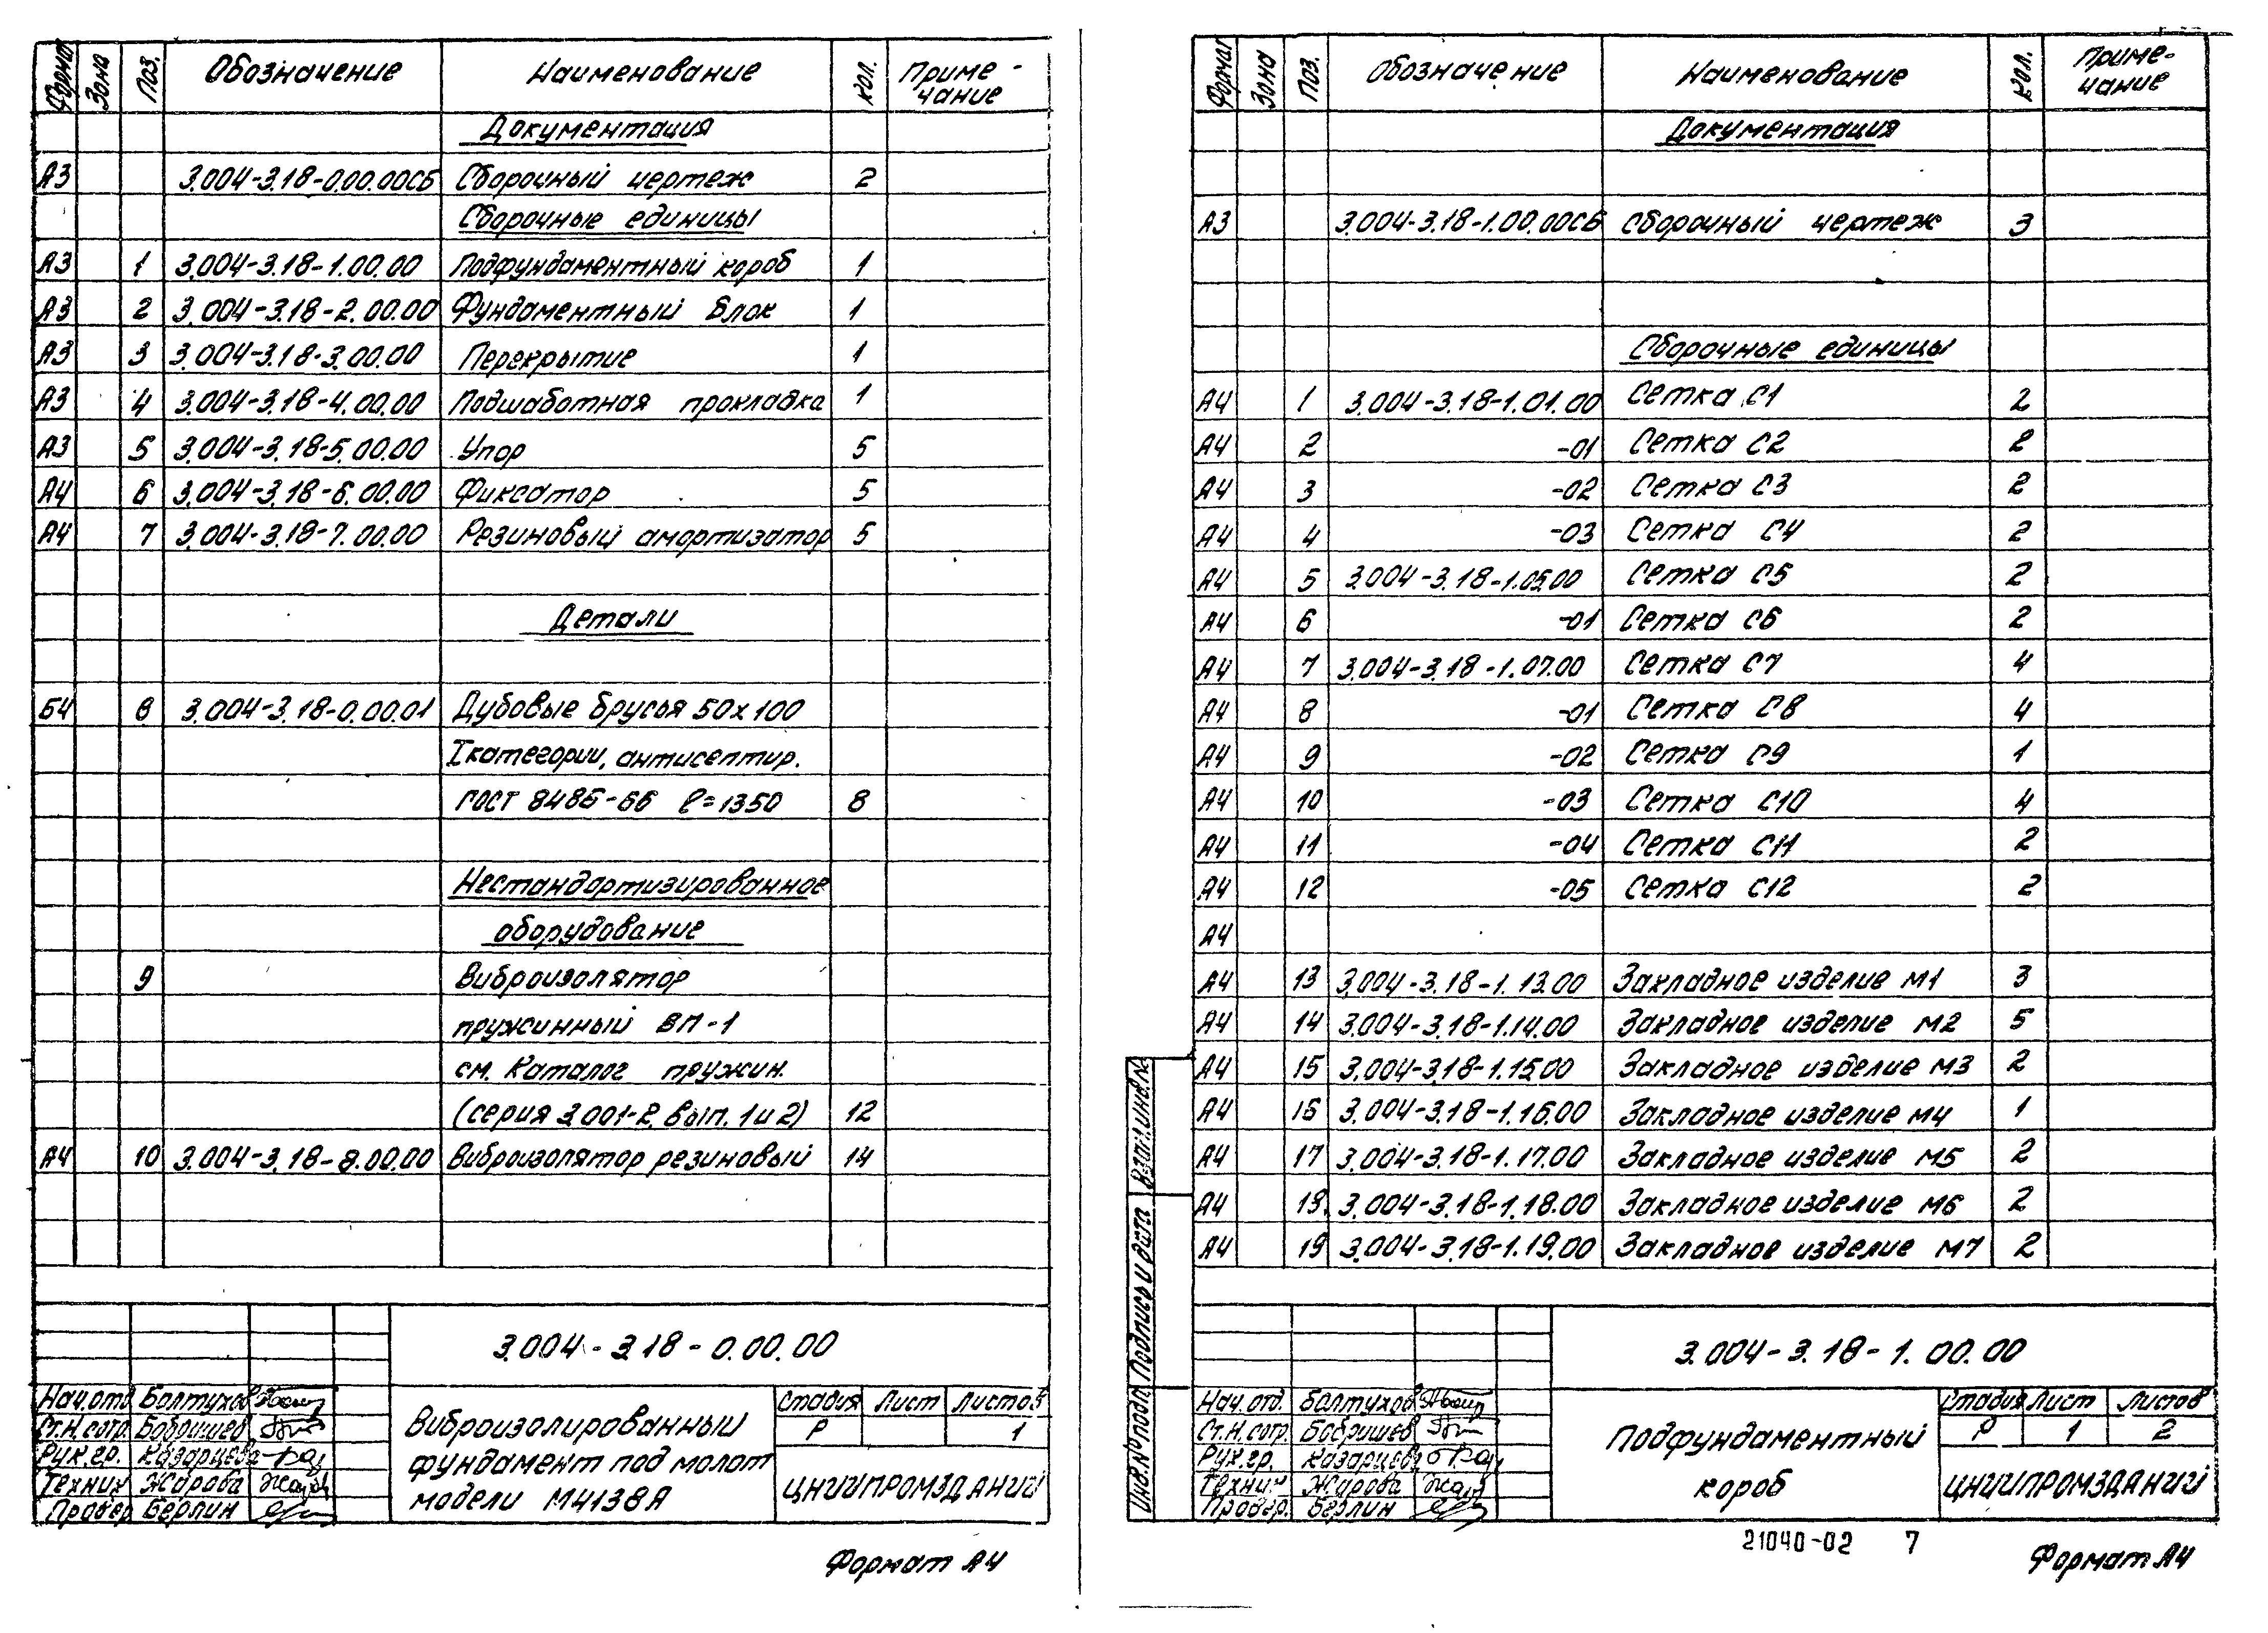 Формат Зона Поз. Обозначение Наименование Кол. Приме-
чание
Документация
А3 3.004-3.18-0.00.00СБ Сборочный чертеж 2
Сборочные единицы
А3 1 3.004-3.18-1.00.00 Подфундаментный короб 1
А3 2 3.004-3.18-2.00.00 Фундаментный блок 1
А3 3 3.004-3.18-3.00.00 Перекрытие 1
А3 4 3.004-3.18-4.00.00 Подшаботная прокладка 1
А3 5 3.004-3.18-5.00.00 Упор 5
А4 6 3.004-3.18-6.00.00 Фиксатор 5
А4 7 3.004-3.18-7.00.00 Резиновый амортизатор 5
Детали
Б4 8 3.004-3.18-0.00.01 Дубовые брусья 50х100
I категории, антисептир.
ГОСТ 8486-66 ℓ=1350 8
Нестандартизированное
оборудование
9 Виброизолятор
пружинный ВП-1
см. Каталог пружин.
(серия 3.001-2, вып. 1 и 2) 12
А4 10 3.004-3.18-8.00.00 Виброизолятор резиновый 14
3.004-3.18-0.00.00
Нач.отд. Болтухов
Ст.н.сотр. Бобришев
Рук.гр. Казарцева
Техник Жарова
Провер. Берлин
Виброизолированный
фундамент под молот
модели М4138А
Стадия Лист Листов
Р 1
ЦНИИПРОМЗДАНИЙ
Формат А4
Формат Зона Поз. Обозначение Наименование Кол. Приме-
чание
Документация
А3 3.004-3.18-1.00.00СБ Сборочный чертеж 3
Сборочные единицы
А4 1 3.004-3.18-1.01.00 Сетка С1 2
А4 2 -01 Сетка С2 2
А4 3 -02 Сетка С3 2
А4 4 -03 Сетка С4 2
А4 5 3.004-3.18-1.05.00 Сетка С5 2
А4 6 -01 Сетка С6 2
А4 7 3.004-3.18-1.07.00 Сетка С7 4
А4 8 -01 Сетка С8 4
А4 9 -02 Сетка С9 1
А4 10 -03 Сетка С10 4
А4 11 -04 Сетка С11 2
А4 12 -05 Сетка С12 2
А4
А4 13 3.004-3.18-1.13.00 Закладное изделие М1 3
А4 14 3.004-3.18-1.14.00 Закладное изделие М2 5
А4 15 3.004-3.18-1.15.00 Закладное изделие М3 2
А4 16 3.004-3.18-1.16.00 Закладное изделие М4 1
А4 17 3.004-3.18-1.17.00 Закладное изделие М5 2
А4 18 3.004-3.18-1.18.00 Закладное изделие М6 2
А4 19 3.004-3.18-1.19.00 Закладное изделие М7 2
Инв.№ подл. Подпись и дата Взам.инв.№
3.004-3.18-1.00.00
Нач.отд. Болтухов
Ст.н.сотр. Бобришев
Рук.гр. Казарцева
Техник Жарова
Провер. Берлин
Подфундаментный
короб
Стадия Лист Листов
Р 1 2
ЦНИИПРОМЗДАНИЙ
21040-02 7
Формат А4